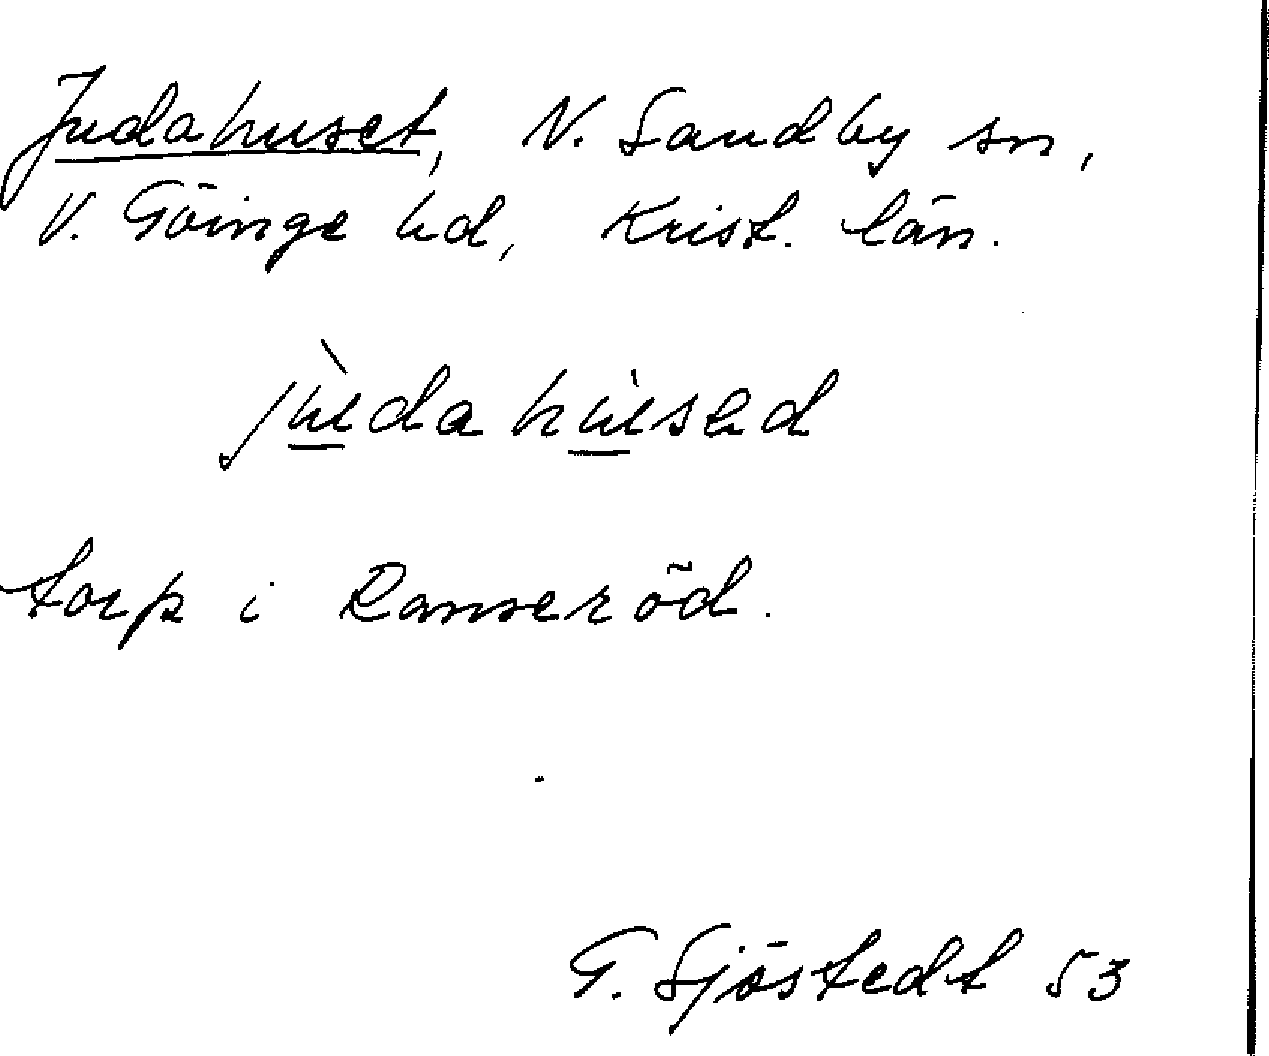 Judahuset, N. Sandby sn,
V. Göinge hd, Krist. län.
jùdahùsad
torp i Ranseröd.
G. Sjöstedt 53